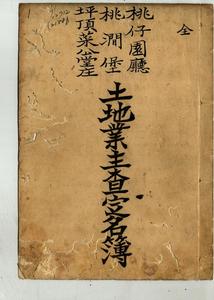 全
桃仔園廳
桃澗堡
坪頂菜公堂庄
土地業主查定名簿